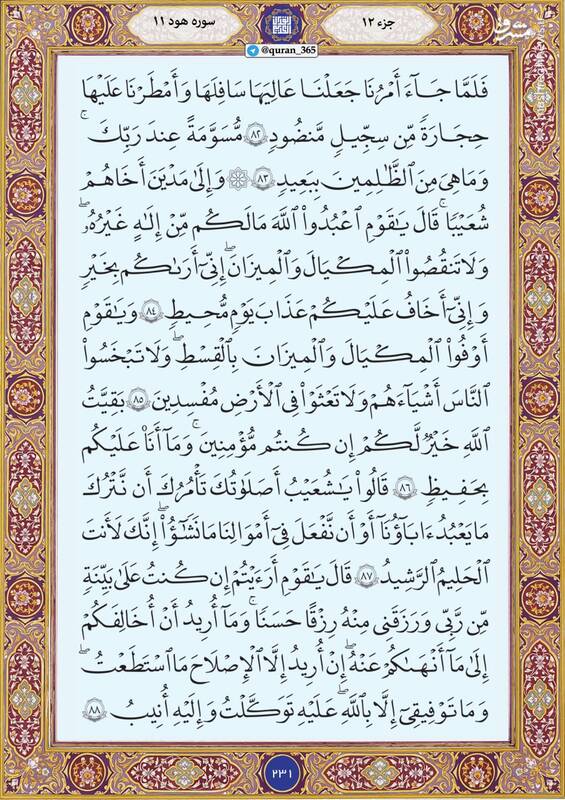 جزء ۱۲
سوره هود ۱۱
@quran_365
فَلَمَّا جَآءَ أَمْرُنَا جَعَلْنَا عَالِيَهَا سَافِلَهَا وَأَمْطَرْنَا عَلَيْهَا
حِجَارَةً مِّن سِجِّيلٍ مَّنضُودٍ ۸۲ مُّسَوَّمَةً عِندَ رَبِّكَ ۖ
وَمَا هِىَ مِنَ ٱلظَّٰلِمِينَ بِبَعِيدٍ ۸۳ ۞ وَإِلَىٰ مَدْيَنَ أَخَاهُمْ
شُعَيْبًا ۚ قَالَ يَٰقَوْمِ ٱعْبُدُوا۟ ٱللَّهَ مَا لَكُم مِّنْ إِلَٰهٍ غَيْرُهُۥ ۖ
وَلَا تَنقُصُوا۟ ٱلْمِكْيَالَ وَٱلْمِيزَانَ ۚ إِنِّىٓ أَرَىٰكُم بِخَيْرٍ
وَإِنِّىٓ أَخَافُ عَلَيْكُمْ عَذَابَ يَوْمٍ مُّحِيطٍ ۸۴ وَيَٰقَوْمِ
أَوْفُوا۟ ٱلْمِكْيَالَ وَٱلْمِيزَانَ بِٱلْقِسْطِ ۖ وَلَا تَبْخَسُوا۟
ٱلنَّاسَ أَشْيَآءَهُمْ وَلَا تَعْثَوْا۟ فِى ٱلْأَرْضِ مُفْسِدِينَ ۸۵ بَقِيَّتُ
ٱللَّهِ خَيْرٌ لَّكُمْ إِن كُنتُم مُّؤْمِنِينَ ۚ وَمَآ أَنَا۠ عَلَيْكُم
بِحَفِيظٍ ۸۶ قَالُوا۟ يَٰشُعَيْبُ أَصَلَوٰتُكَ تَأْمُرُكَ أَن نَّتْرُكَ
مَا يَعْبُدُ ءَابَآؤُنَآ أَوْ أَن نَّفْعَلَ فِىٓ أَمْوَٰلِنَا مَا نَشَٰٓؤُا۟ ۖ إِنَّكَ لَأَنتَ
ٱلْحَلِيمُ ٱلرَّشِيدُ ۸۷ قَالَ يَٰقَوْمِ أَرَءَيْتُمْ إِن كُنتُ عَلَىٰ بَيِّنَةٍ
مِّن رَّبِّى وَرَزَقَنِى مِنْهُ رِزْقًا حَسَنًا ۚ وَمَآ أُرِيدُ أَنْ أُخَالِفَكُمْ
إِلَىٰ مَآ أَنْهَىٰكُمْ عَنْهُ ۚ إِنْ أُرِيدُ إِلَّا ٱلْإِصْلَٰحَ مَا ٱسْتَطَعْتُ ۚ
وَمَا تَوْفِيقِىٓ إِلَّا بِٱللَّهِ ۚ عَلَيْهِ تَوَكَّلْتُ وَإِلَيْهِ أُنِيبُ ۸۸
۲۳۱